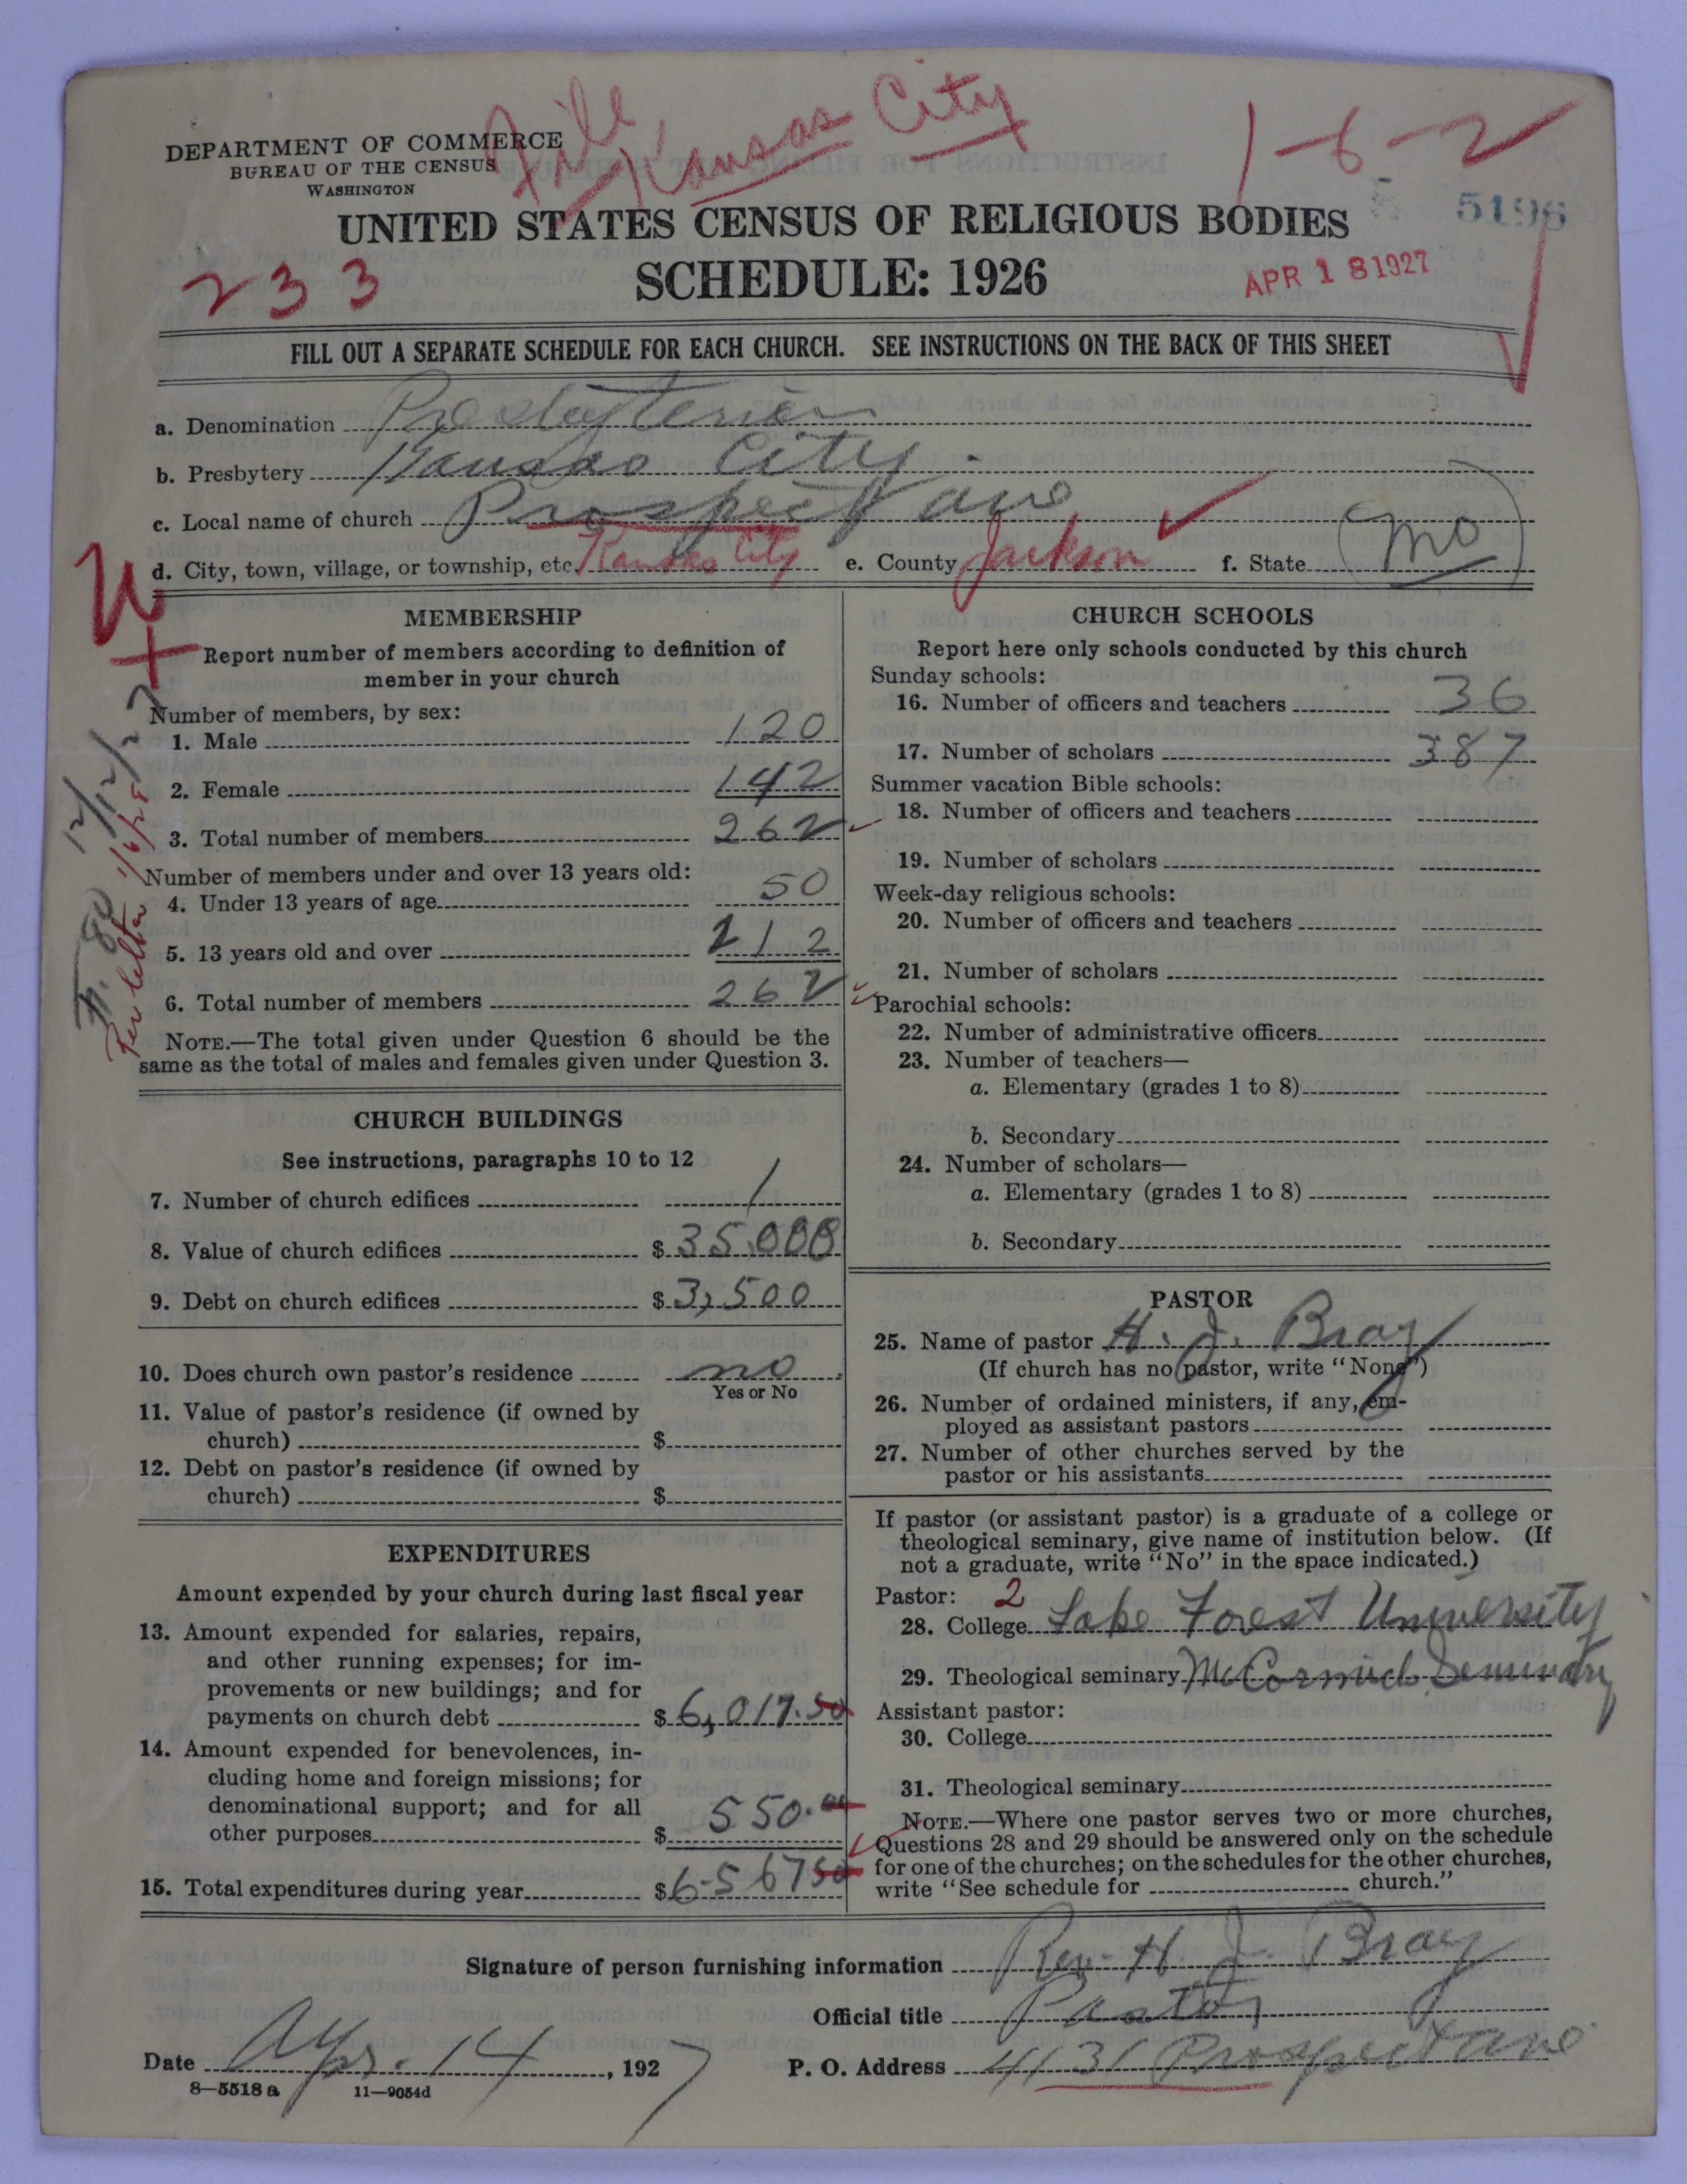 File Kansas City
1-6-2
DEPARTMENT OF COMMERCE
BUREAU OF THE CENSUS
WASHINGTON
UNITED STATES CENSUS OF RELIGIOUS BODIES
5196
233
SCHEDULE: 1926
APR 18 1927
FILL OUT A SEPARATE SCHEDULE FOR EACH CHURCH. SEE INSTRUCTIONS ON THE BACK OF THIS SHEET
a. Denomination Presbyterian
b. Presbytery Kansas City.
c. Local name of church Prospect Ave
d. City, town, village, or township, etc. Kansas City e. County Jackson f. State Mo
MEMBERSHIP
Report number of members according to definition of
member in your church
Number of members, by sex:
1. Male 120
2. Female 142
3. Total number of members 262
Number of members under and over 13 years old:
4. Under 13 years of age 50
5. 13 years old and over 212
6. Total number of members 262
NOTE.—The total given under Question 6 should be the
same as the total of males and females given under Question 3.
12/12/27
Per letter 1/6/28
CHURCH BUILDINGS
See instructions, paragraphs 10 to 12
7. Number of church edifices 1
8. Value of church edifices $ 35,000
9. Debt on church edifices $ 3,500
10. Does church own pastor's residence no
Yes or No
11. Value of pastor's residence (if owned by
church) $
12. Debt on pastor's residence (if owned by
church) $
EXPENDITURES
Amount expended by your church during last fiscal year
13. Amount expended for salaries, repairs,
and other running expenses; for im-
provements or new buildings; and for
payments on church debt $ 6,017.50
14. Amount expended for benevolences, in-
cluding home and foreign missions; for
denominational support; and for all
other purposes $ 550.00
15. Total expenditures during year $ 6567 50
CHURCH SCHOOLS
Report here only schools conducted by this church
Sunday schools:
16. Number of officers and teachers 36
17. Number of scholars 387
Summer vacation Bible schools:
18. Number of officers and teachers
19. Number of scholars
Week-day religious schools:
20. Number of officers and teachers
21. Number of scholars
Parochial schools:
22. Number of administrative officers
23. Number of teachers—
a. Elementary (grades 1 to 8)
b. Secondary
24. Number of scholars—
a. Elementary (grades 1 to 8)
b. Secondary
PASTOR
25. Name of pastor H. J. Bray
(If church has no pastor, write "None")
26. Number of ordained ministers, if any, em-
ployed as assistant pastors
27. Number of other churches served by the
pastor or his assistants
If pastor (or assistant pastor) is a graduate of a college or
theological seminary, give name of institution below. (If
not a graduate, write "No" in the space indicated.)
Pastor: 2
28. College Lake Forest University
29. Theological seminary McCormick Seminary
Assistant pastor:
30. College
31. Theological seminary
NOTE.—Where one pastor serves two or more churches,
Questions 28 and 29 should be answered only on the schedule
for one of the churches; on the schedules for the other churches,
write "See schedule for church."
Signature of person furnishing information Rev. H J. Bray
Official title Pastor
Date Apr. 14, 1927 P. O. Address 4131 Prospect Ave
8—5518 a 11—9054d